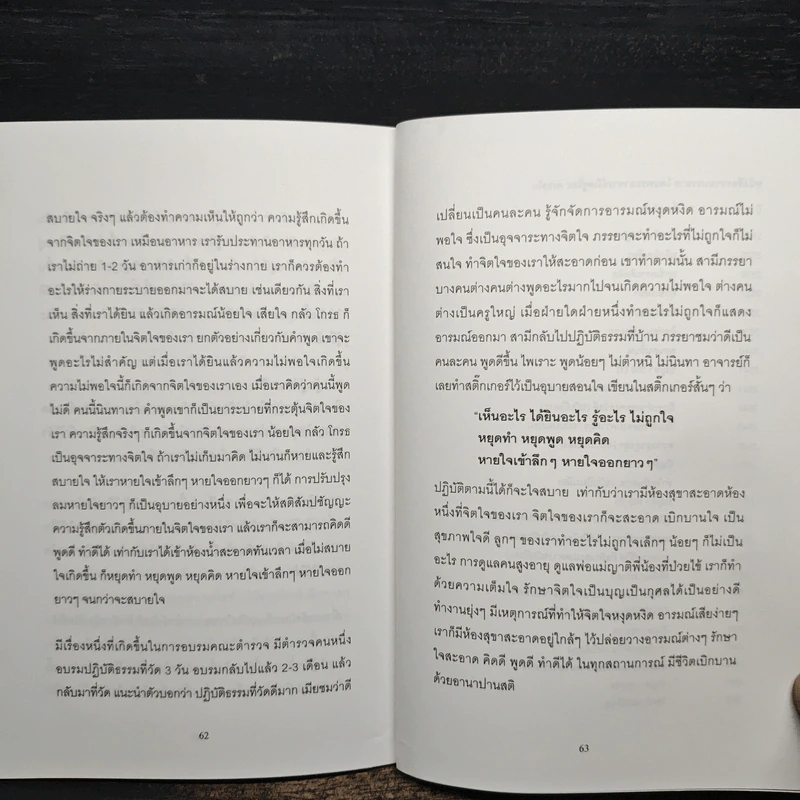 สบายใจ จริงๆ แล้วต้องทำความเห็นให้ถูกว่า ความรู้สึกเกิดขึ้น
จากจิตใจของเรา เหมือนอาหาร เรารับประทานอาหารทุกวัน ถ้า
เราไม่ถ่าย 1-2 วัน อาหารเก่าก็อยู่ในร่างกาย เราก็ควรต้องทำ
อะไรให้ร่างกายระบายออกมาจะได้สบาย เช่นเดียวกัน สิ่งที่เรา
เห็น สิ่งที่เราได้ยิน แล้วเกิดอารมณ์น้อยใจ เสียใจ กลัว โกรธ ก็
เกิดขึ้นจากภายในจิตใจของเรา ยกตัวอย่างเกี่ยวกับคำพูด เขาจะ
พูดอะไรไม่สำคัญ แต่เมื่อเราได้ยินแล้วความไม่พอใจเกิดขึ้น
ความไม่พอใจนี้ก็เกิดจากจิตใจของเราเอง เมื่อเราคิดว่าคนนี้พูด
ไม่ดี คนนี้นินทาเรา คำพูดเขาก็เป็นยาระบายที่กระตุ้นจิตใจของ
เรา ความรู้สึกจริงๆ ก็เกิดขึ้นจากจิตใจของเรา น้อยใจ กลัว โกรธ
เป็นอุจจาระทางจิตใจ ถ้าเราไม่เก็บมาคิด ไม่นานก็หายและรู้สึก
สบายใจ ให้เราหายใจเข้าลึกๆ หายใจออกยาวๆ ก็ได้ การปรับปรุง
ลมหายใจยาวๆ ก็เป็นอุบายอย่างหนึ่ง เพื่อจะให้สติสัมปชัญญะ
ความรู้สึกตัวเกิดขึ้นภายในจิตใจของเรา แล้วเราก็จะสามารถคิดดี
พูดดี ทำดีได้ เท่ากับเราได้เข้าห้องน้ำสะอาดทันเวลา เมื่อไม่สบาย
ใจเกิดขึ้น ก็หยุดทำ หยุดพูด หยุดคิด หายใจเข้าลึกๆ หายใจออก
ยาวๆ จนกว่าจะสบายใจ
มีเรื่องหนึ่งที่เกิดขึ้นในการอบรมคณะตำรวจ มีตำรวจคนหนึ่ง
อบรมปฏิบัติธรรมที่วัด 3 วัน อบรมกลับไปแล้ว 2-3 เดือน แล้ว
กลับมาที่วัด แนะนำตัวบอกว่า ปฏิบัติธรรมที่วัดดีมาก เมียชมว่าดี
62
เปลี่ยนเป็นคนละคน รู้จักจัดการอารมณ์หงุดหงิด อารมณ์ไม่
พอใจ ซึ่งเป็นอุจจาระทางจิตใจ ภรรยาจะทำอะไรที่ไม่ถูกใจก็ไม่
สนใจ ทำจิตใจของเราให้สะอาดก่อน เขาทำตามนั้น สามีภรรยา
บางคนต่างคนต่างพูดอะไรมากไปจนเกิดความไม่พอใจ ต่างคน
ต่างเป็นครูใหญ่ เมื่อฝ่ายใดฝ่ายหนึ่งทำอะไรไม่ถูกใจก็แสดง
อารมณ์ออกมา สามีกลับไปปฏิบัติธรรมที่บ้าน ภรรยาชมว่าดีเป็น
คนละคน พูดดีขึ้น ไพเราะ พูดน้อยๆ ไม่ตำหนิ ไม่นินทา อาจารย์ก็
เลยทำสติ๊กเกอร์ไว้เป็นอุบายสอนใจ เขียนในสติ๊กเกอร์สั้นๆ ว่า
“เห็นอะไร ได้ยินอะไร รู้อะไร ไม่ถูกใจ
หยุดทำ หยุดพูด หยุดคิด
หายใจเข้าลึกๆ หายใจออกยาวๆ”
ปฏิบัติตามนี้ได้ก็จะใจสบาย เท่ากับว่าเรามีห้องสุขาสะอาดห้อง
หนึ่งที่จิตใจของเรา จิตใจของเราก็จะสะอาด เบิกบานใจ เป็น
สุขภาพใจดี ลูกๆ ของเราทำอะไรไม่ถูกใจเล็กๆ น้อยๆ ก็ไม่เป็น
อะไร การดูแลคนสูงอายุ ดูแลพ่อแม่ญาติพี่น้องที่ป่วยไข้ เราก็ทำ
ด้วยความเต็มใจ รักษาจิตใจเป็นบุญเป็นกุศลได้เป็นอย่างดี
ทำงานยุ่งๆ มีเหตุการณ์ที่ทำให้จิตใจหงุดหงิด อารมณ์เสียง่ายๆ
เราก็มีห้องสุขาสะอาดอยู่ใกล้ๆ ไว้ปล่อยวางอารมณ์ต่างๆ รักษา
ใจสะอาด คิดดี พูดดี ทำดีได้ ในทุกสถานการณ์ มีชีวิตเบิกบาน
ด้วยอานาปานสติ
63